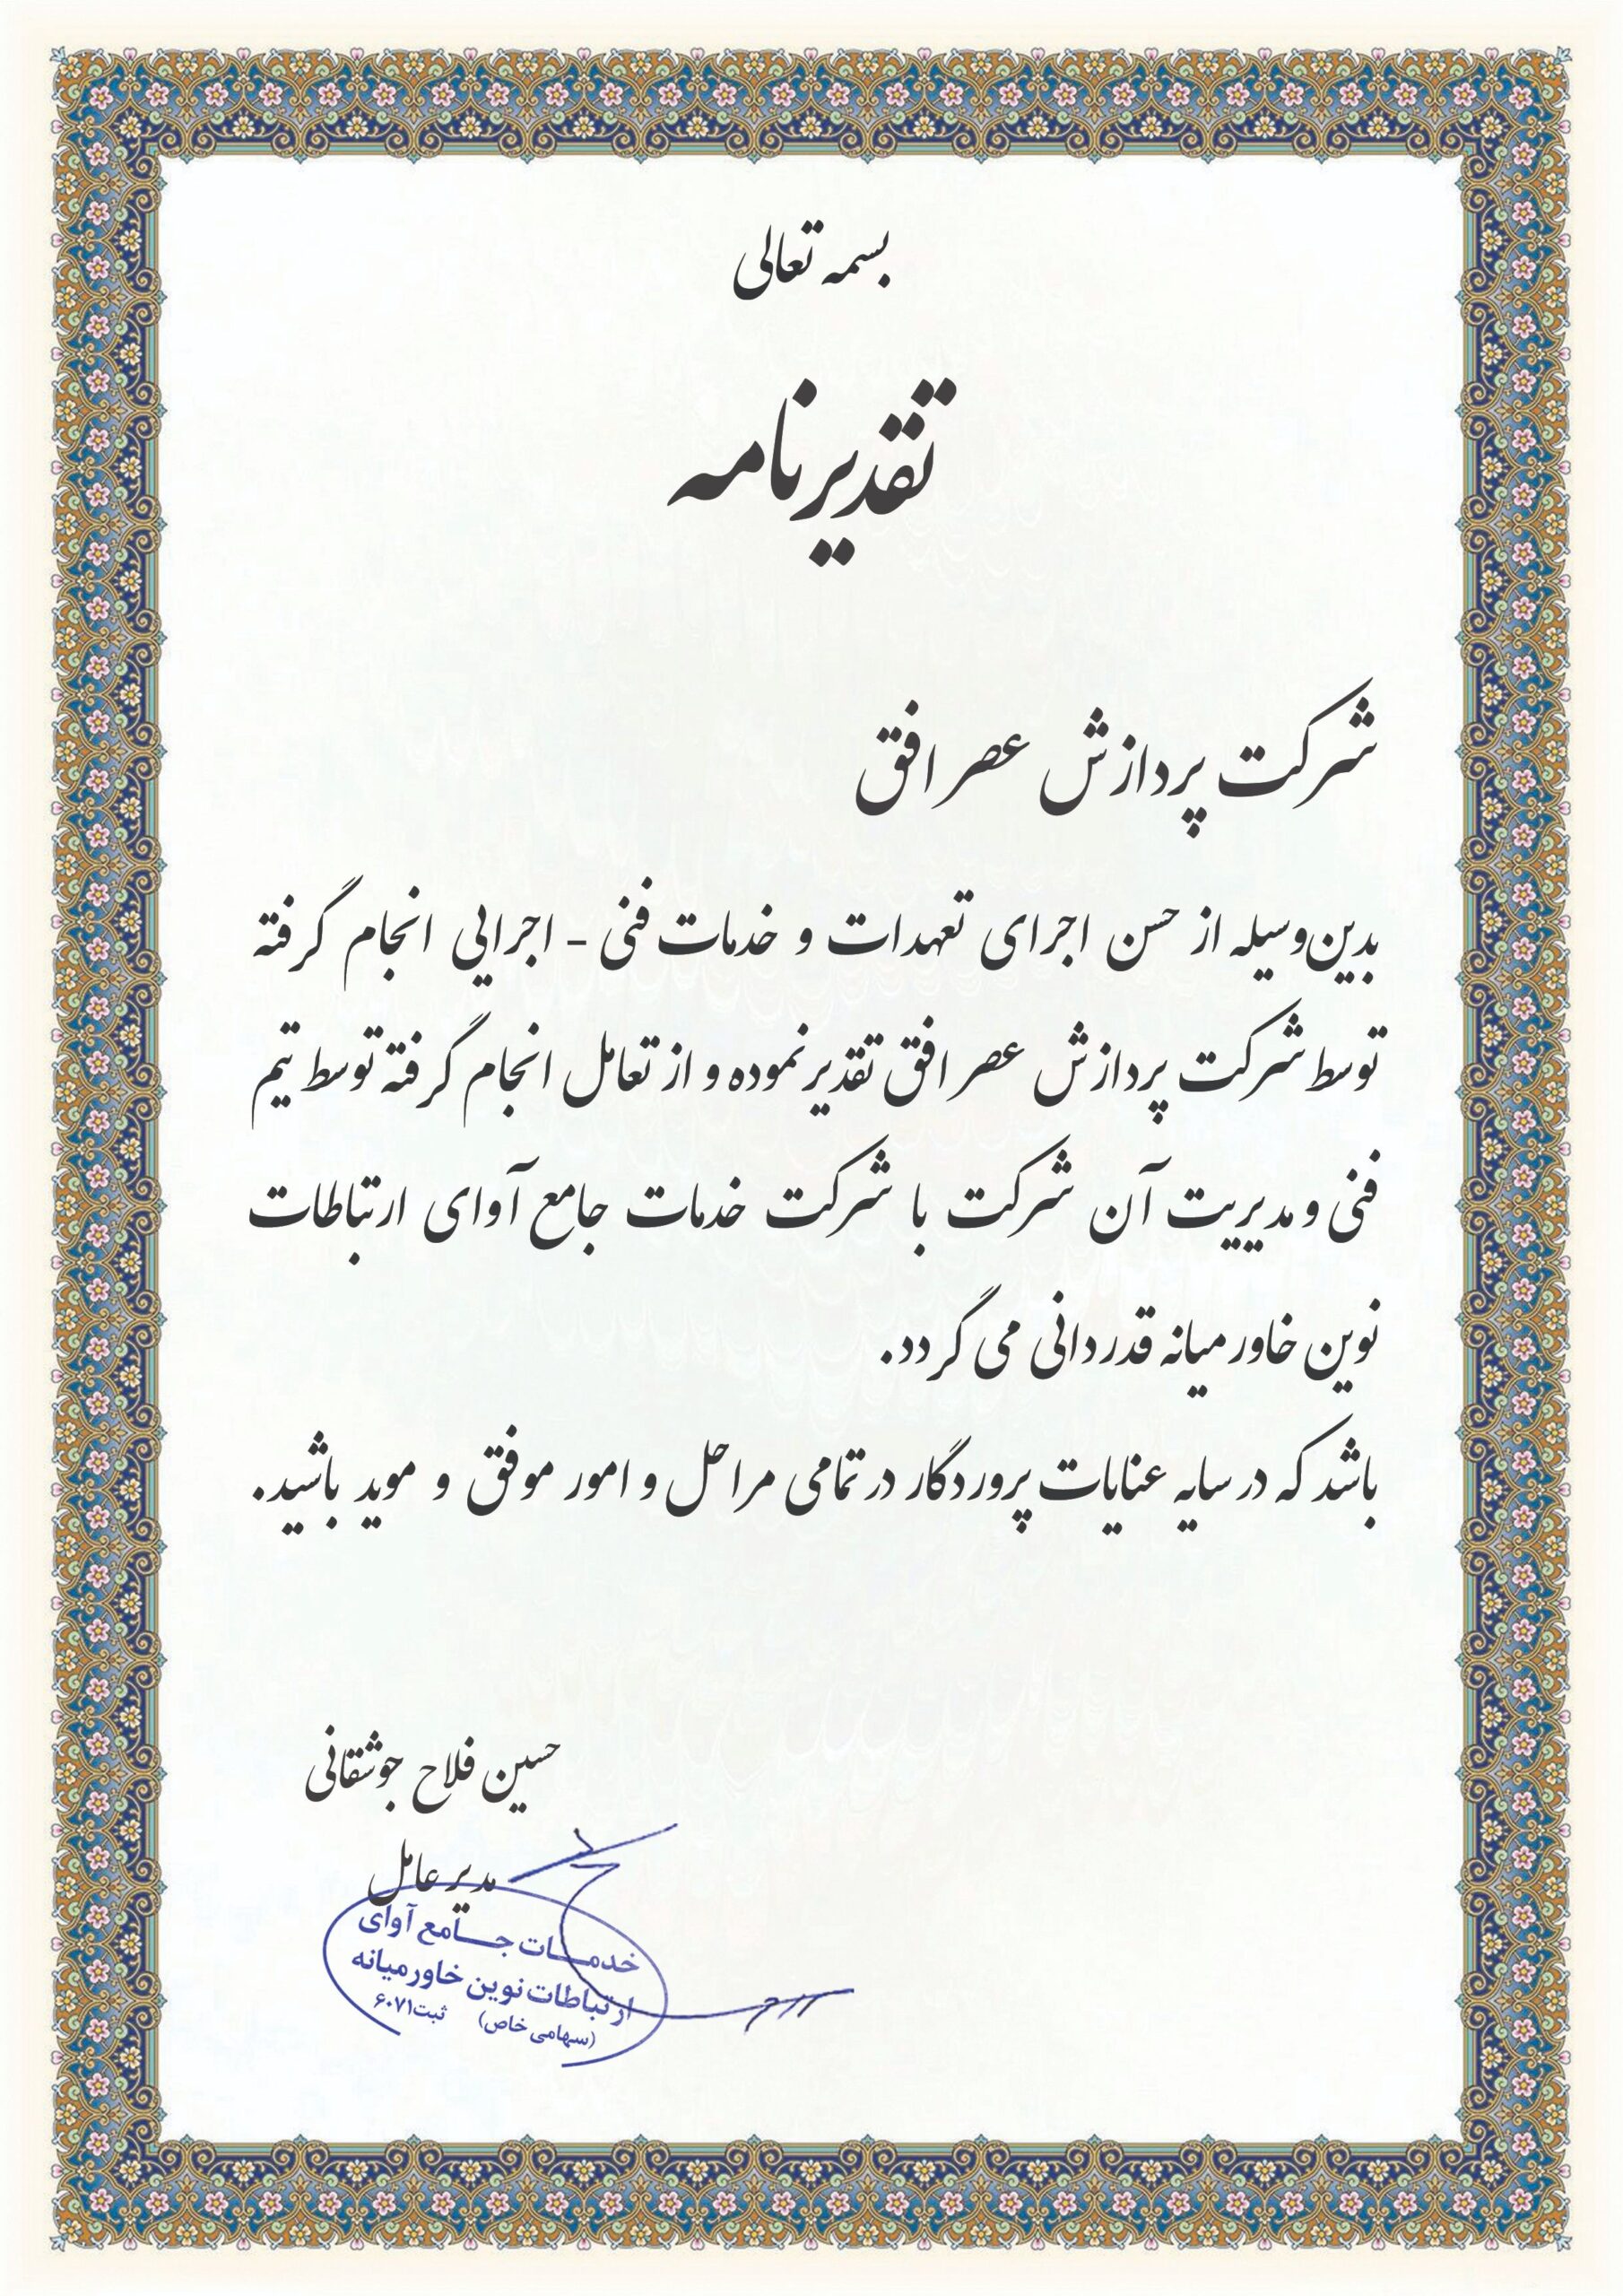 بسمه تعالی
تقدیرنامه
شرکت پردازش عصر افق
بدین‌وسیله از حسن اجرای تعهدات و خدمات فنی - اجرایی انجام گرفته
توسط شرکت پردازش عصر افق تقدیر نموده و از تعامل انجام گرفته توسط تیم
فنی و مدیریت آن شرکت با شرکت خدمات جامع آوای ارتباطات
نوین خاور میانه قدردانی می گردد.
باشد که در سایه عنایات پروردگار در تمامی مراحل و امور موفق و موید باشید.
حسین فلاح جوشقانی
مدیر عامل
خدمات جامع آوای
ارتباطات نوین خاورمیانه
(سهامی خاص) ثبت ۶۰۷۱